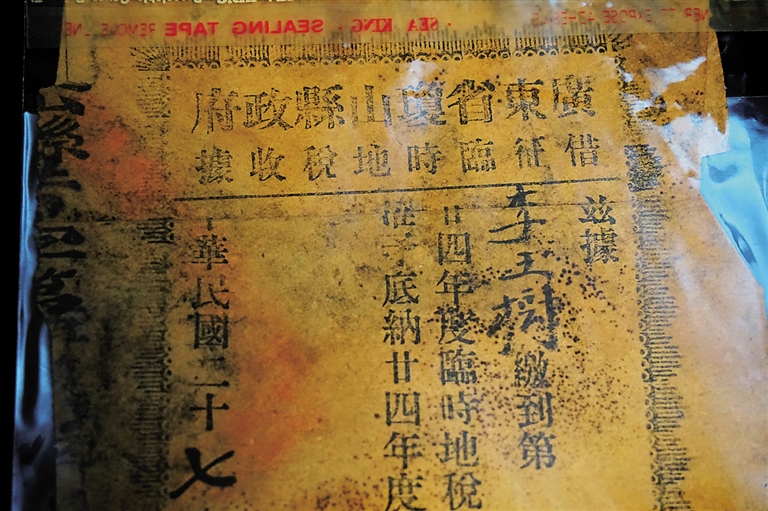 · SEA KING · SEALING TAPE REMOVE
廣東省瓊山縣政府
借征臨時地稅收據
茲據
李王樹繳到第
廿四年度臨時地稅
准予底納廿四年度
中華民國二十七